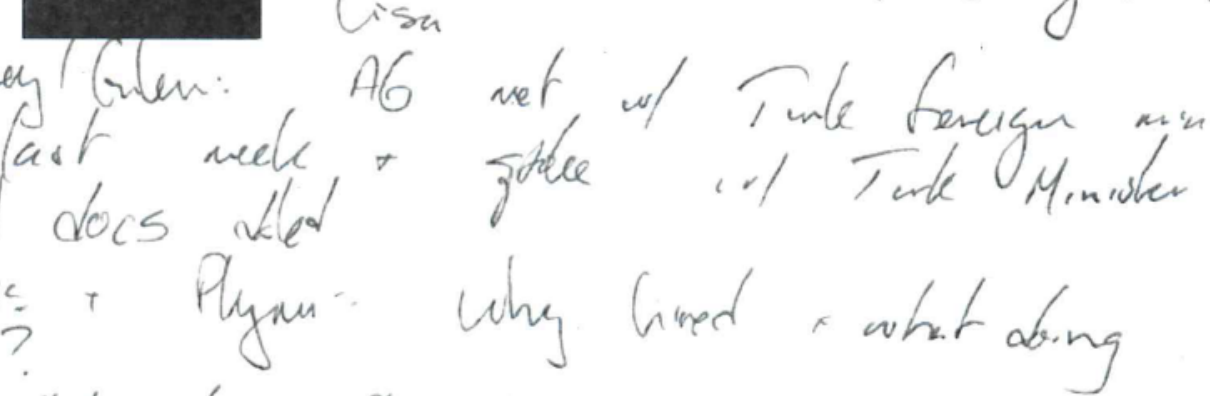 Lisa
Gulen: AG met w/ Turk foreign min
last week + spoke w/ Turk Minister
docs
+ Flynn: Why hired + what doing
?